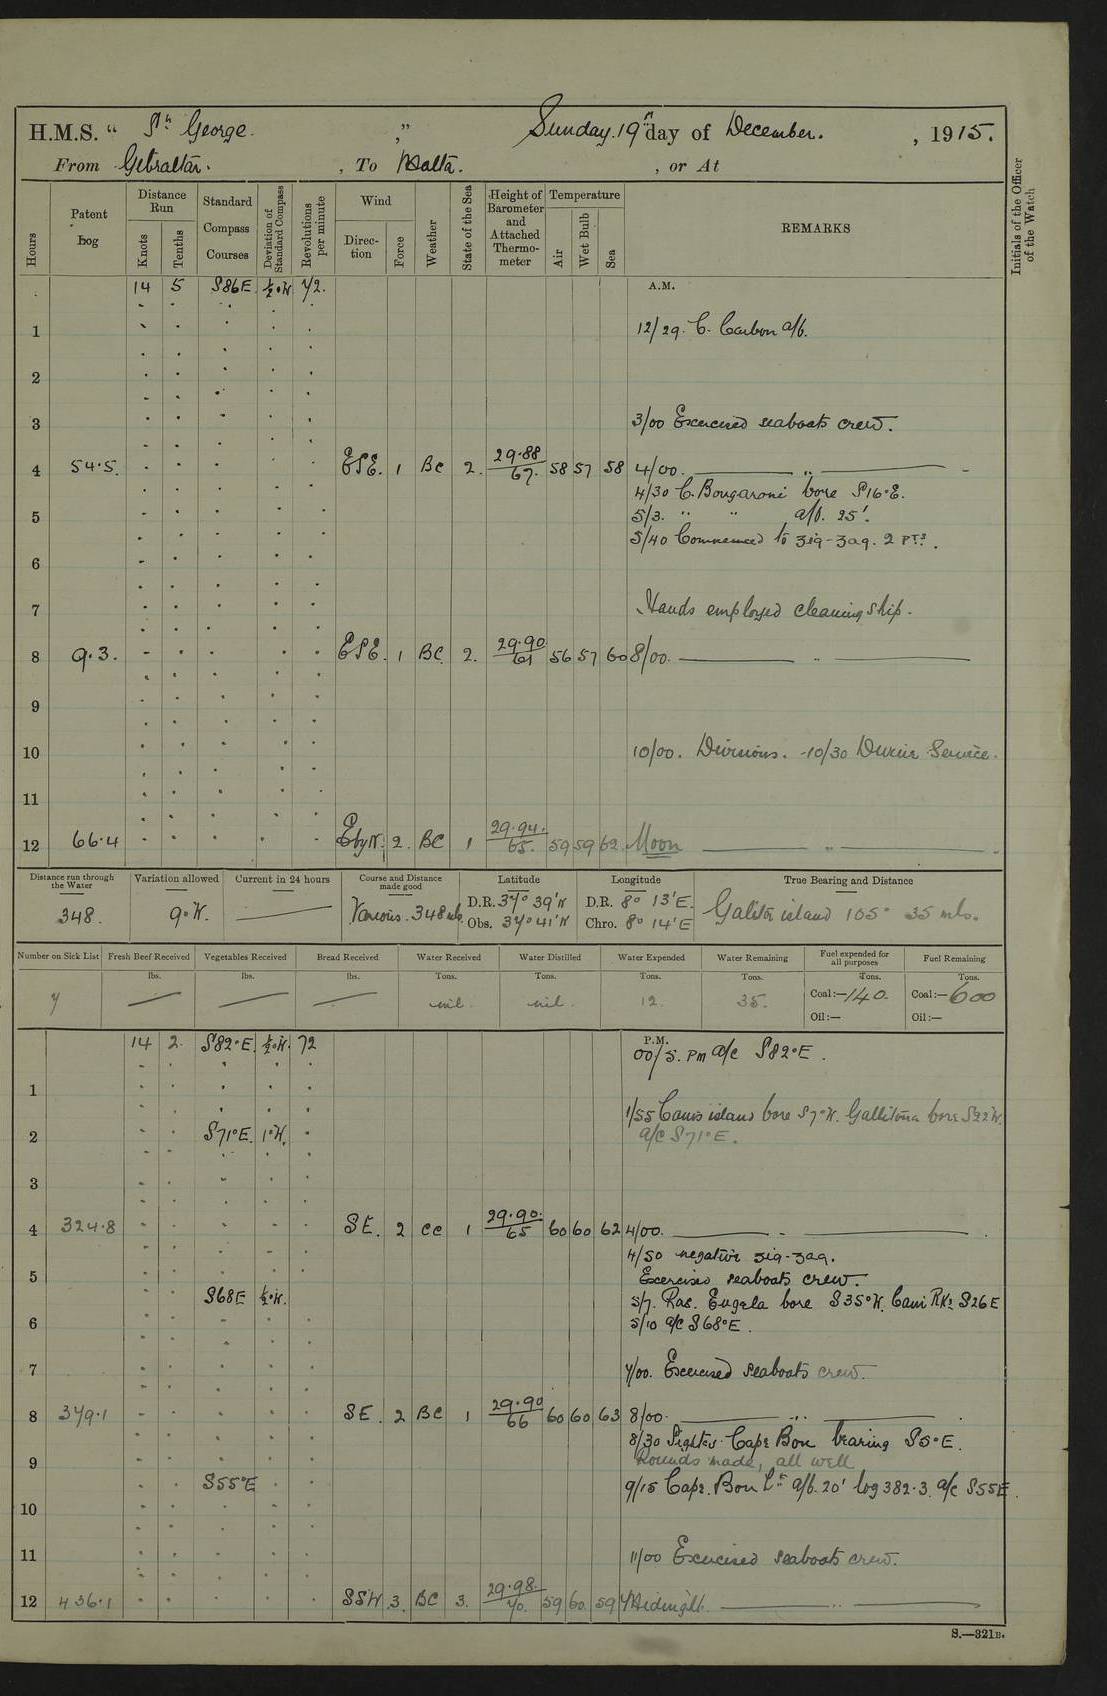 H.M.S. “ St George. ” Sunday. 19th day of December. , 1915.
From Gibraltar. , To Malta. , or At
Hours Patent Log Distance Run Knots Tenths Standard Compass Courses Deviation of Standard Compass Revolutions per minute Wind Direction Force Weather State of the Sea Height of Barometer and Attached Thermometer Temperature Air Wet Bulb Sea REMARKS Initials of the Officer of the Watch
14 5 S86E. ½°W 72. A.M.
1 12/29. C. Carbon a/b.
2
3 3/00 Exercised seaboats crew.
4 54.5. ESE. 1 BC 2. 29.88/67. 58 57 58 4/00. — " —
4/30 C. Bougaroni bore S16°E.
5 5/3. " " a/b. 25'.
5/40 Commenced to zig-zag. 2 PTS.
6
7 Hands employed cleaning ship.
8 9.3. ESE. 1 BC. 2. 29.90/61 56 57 60 8/00. — " —
9
10 10/00. Divisions. -10/30 Divine Service.
11
12 66.4 EbyN. 2. BC 1 29.94./65. 59 59 62. Noon — " —
Distance run through the Water Variation allowed Current in 24 hours Course and Distance made good Latitude Longitude True Bearing and Distance
348. 9°W. — Various. 348 mls. D.R. 37° 39'N D.R. 8° 13'E. Galita island 105° 35 mls.
Obs. 37° 41'N Chro. 8° 14'E
Number on Sick List Fresh Beef Received Vegetables Received Bread Received Water Received Water Distilled Water Expended Water Remaining Fuel expended for all purposes Fuel Remaining
lbs. lbs. lbs. Tons. Tons. Tons. Tons. Tons. Tons.
7 — — — nil. nil. 12. 35. Coal:—140. Coal:—600
Oil:— Oil:—
14 2. S82°E. ½°W. 72 P.M.
00/5. PM a/c S82°E.
1
1/55 Canis island bore S7°W. Gallitona bore S22W.
2 S71°E. 1°W. a/c S71°E.
3
4 324.8 SE. 2 CC 1 29.90./65 60 60 62 4/00. — " —
4/50 negative zig-zag.
5 Exercised seaboats crew.
S68E ½°W. 5/7. Ras. Engela bore S35°W. Cani Rks S26E
6 5/10 a/c S68°E.
7 7/00. Exercised seaboats crew.
8 379.1 SE. 2 BC 1 29.90/66 60 60 63 8/00. — " —
8/30 Sighted Cape Bon bearing S5°E.
9 Rounds made, all well
S55°E 9/15 Cape. Bon Lt a/b. 20' log 382.3. a/c S55E.
10
11 11/00 Exercised seaboats crew.
12 436.1 SSW 3. BC 3. 29.98./70. 59 60. 59 Midnight. — " —
S.—321B.